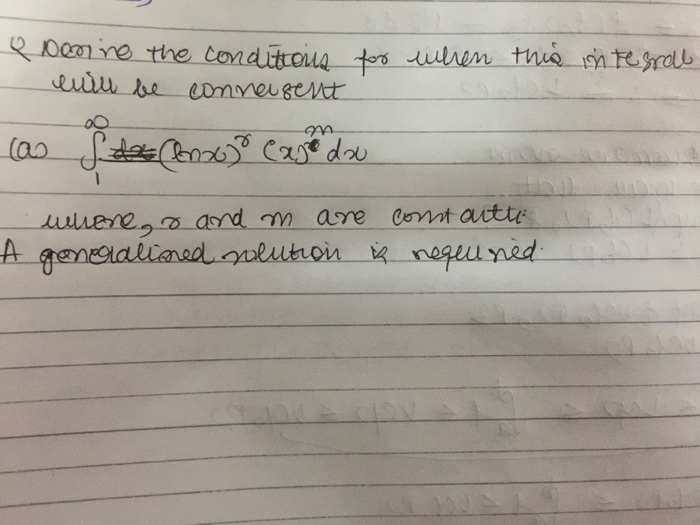 Q Derive the conditions for when this integral
will be convergent
∞
(a) ∫ (ln x)^r (x)^m dx
1
where, r and m are constants.
A generalized solution is required.